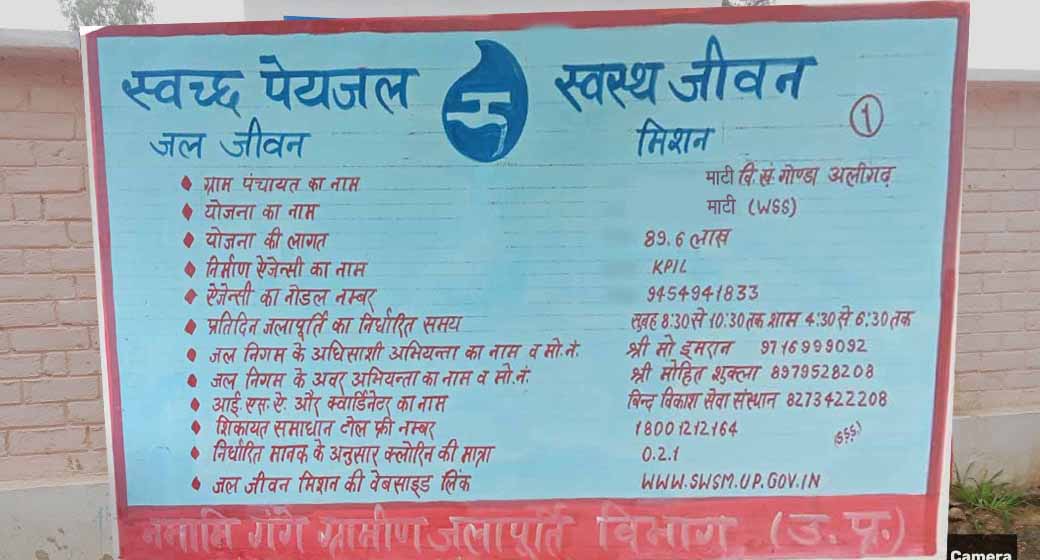 स्वच्छ पेयजल स्वस्थ जीवन
जल जीवन मिशन १
ग्राम पंचायत का नाम माटी वि.खं. गोण्डा अलीगढ़
योजना का नाम माटी (WSS)
योजना की लागत 89.6 लाख
निर्माण ऐजेन्सी का नाम KPIL
ऐजेन्सी का नोडल नम्बर 9454941833
प्रतिदिन जलापूर्ति का निर्धारित समय सुबह 8:30 से 10:30 तक शाम 4:30 से 6:30 तक
जल निगम के अधिसाशी अभियन्ता का नाम व मो.नं. श्री मो इमरान 9716999092
जल निगम के अवर अभियन्ता का नाम व मो.नं. श्री मोहित शुक्ला 8979528208
आई.एस.ऐ. और क्वार्डिनेटर का नाम बिन्द विकाश सेवा संस्थान 8273422208
शिकायत समाधान टोल फ्री नम्बर 18001212164
(SSS)
निर्धारित मानक के अनुसार क्लोरिन की मात्रा 0.2.1
जल जीवन मिशन की वेबसाइड लिंक WWW.SWSM.UP.GOV.IN
नमामि गंगे ग्रामीण जलापूर्ति विभाग (उ.प्र.)
Camera